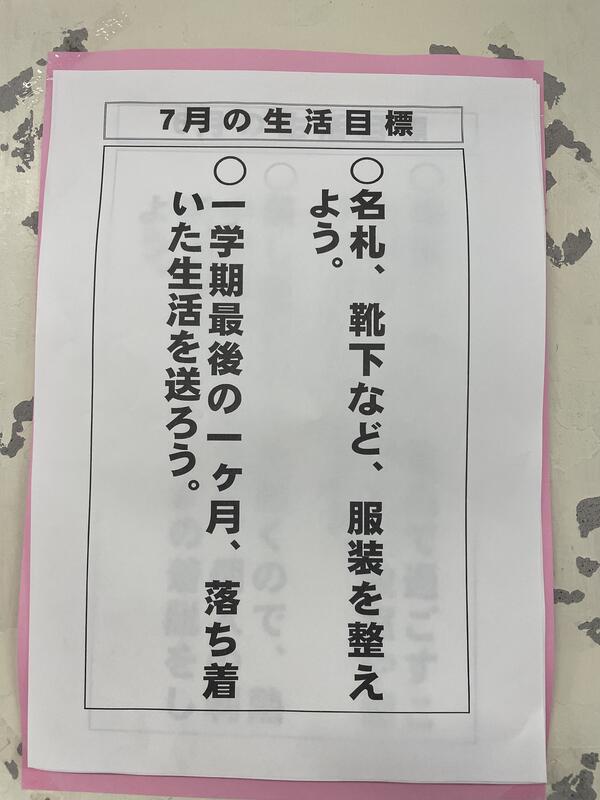 7月の生活目標
○名札、靴下など、服装を整え
よう。
○一学期最後の一ケ月、落ち着
いた生活を送ろう。